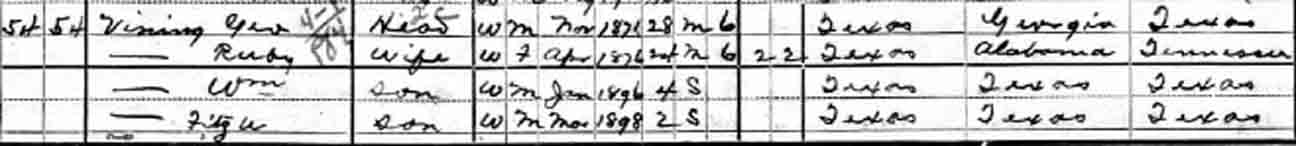 54 54 Vining Geo Head W M Nov 1871 28 M 6 Texas Georgia Texas
— Ruby Wife W F Apr 1876 24 M 6 2 2 Texas Alabama Tennessee
— Wm Son W M Jan 1896 4 S Texas Texas Texas
— Son W M Mar 1898 2 S Texas Texas Texas